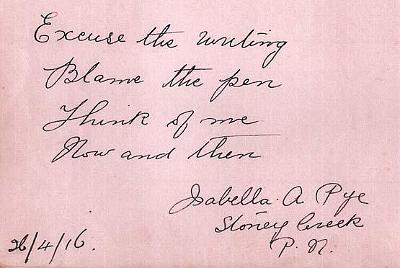 Excuse the writing
Blame the pen
Think of me
Now and then
Isabella A Pye
Stoney Creek
P. N.
26/4/16.